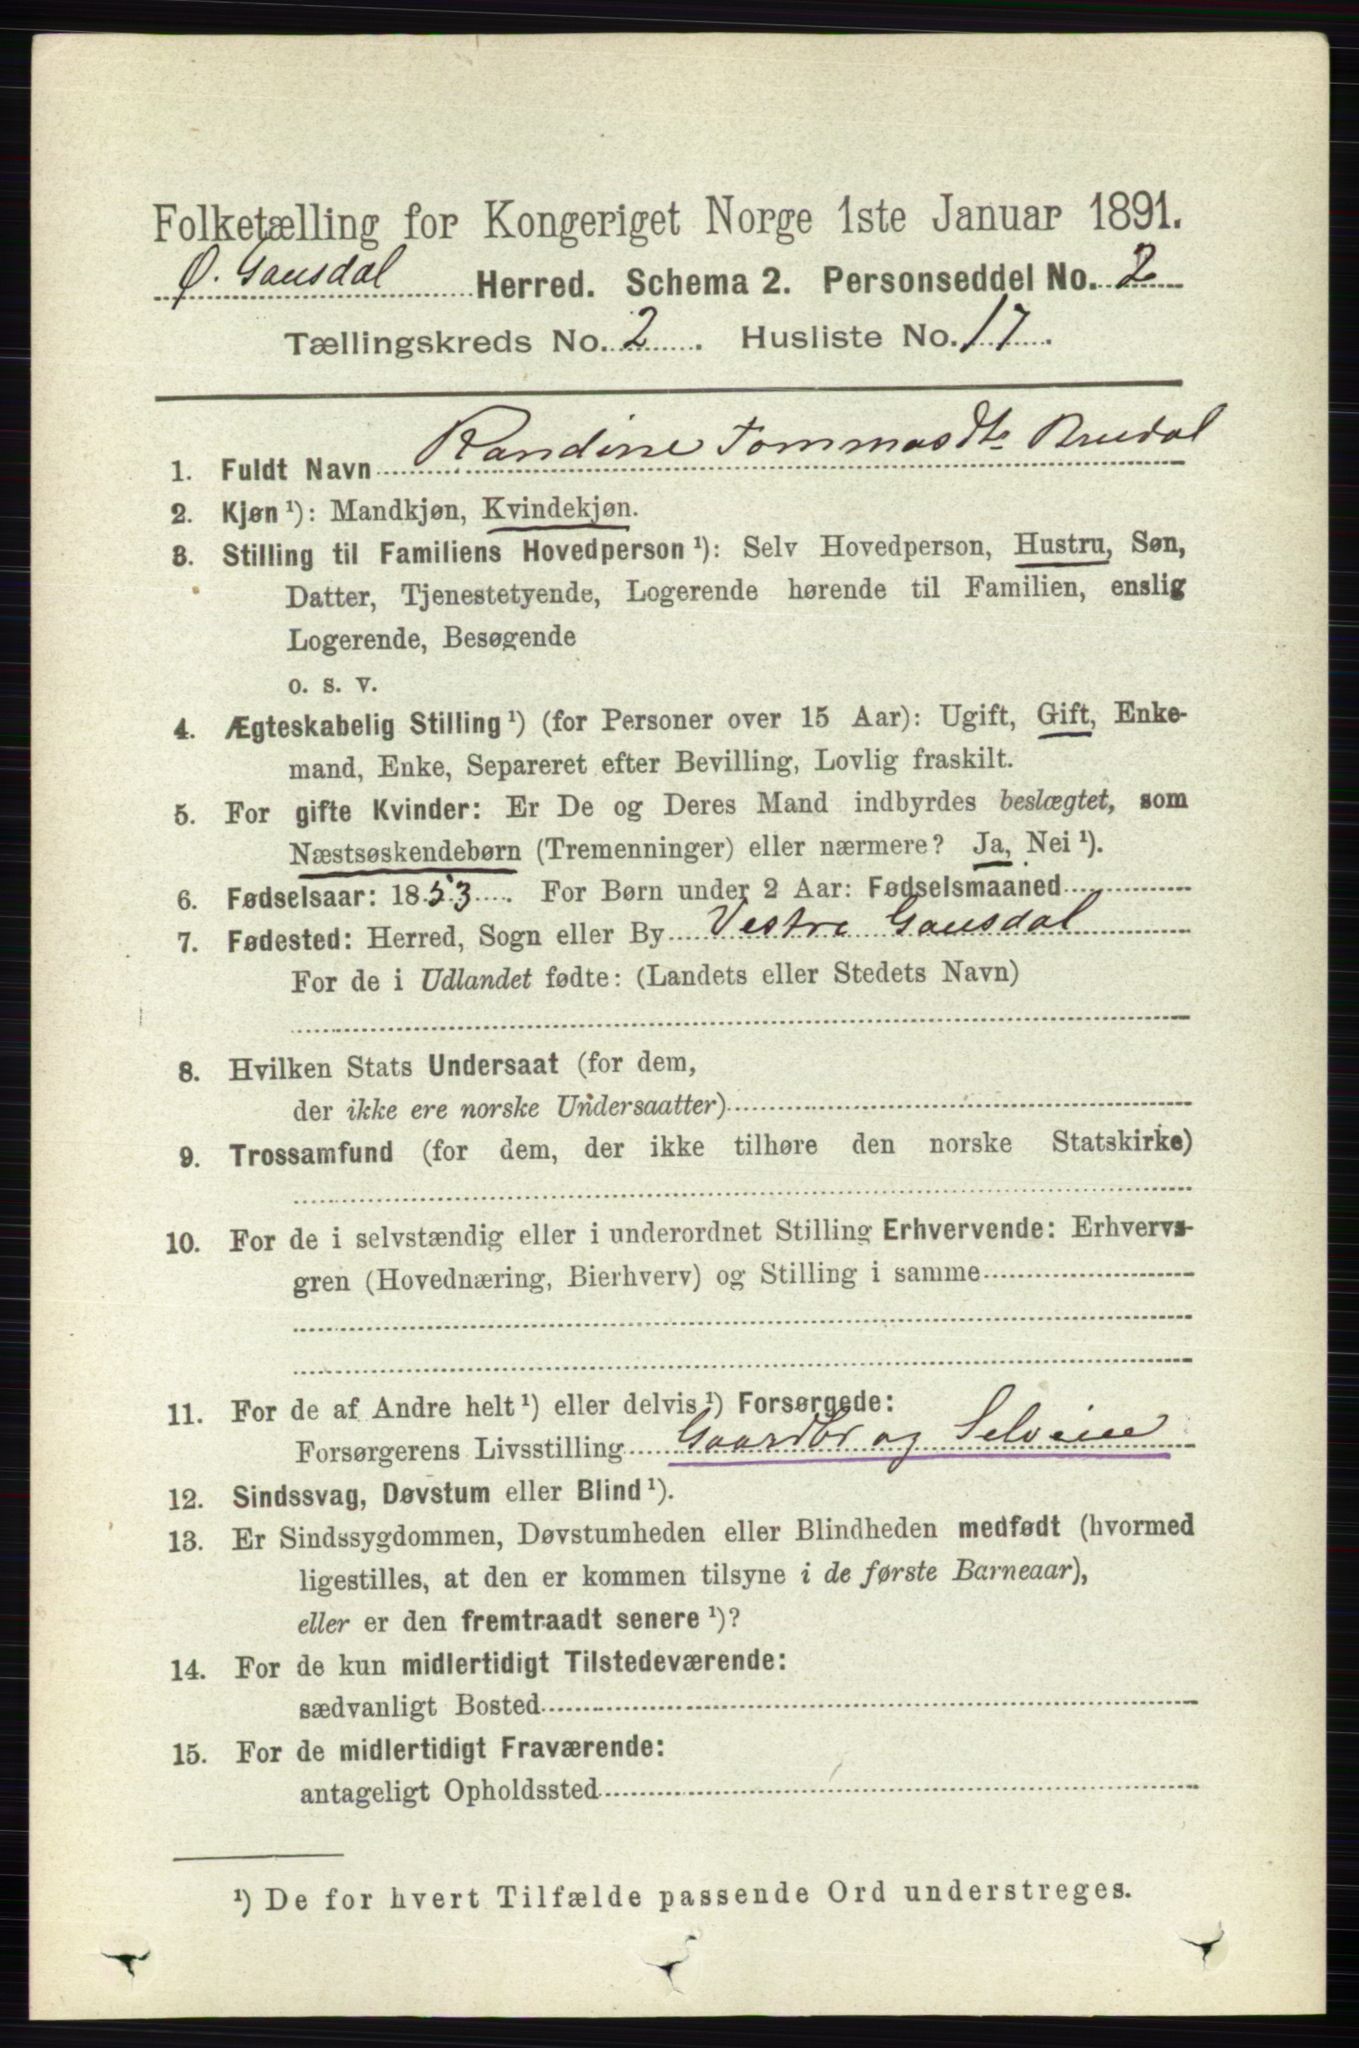 Folketælling for Kongeriget Norge 1ste Januar 1891.
Ø. Gausdal Herred. Schema 2. Personseddel No. 2
Tællingskreds No. 2. Husliste No. 17.
1. Fuldt Navn Randine Tommasdt. Bruedal
2. Kjøn ¹): Mandkjøn, Kvindekjøn.
3. Stilling til Familiens Hovedperson ¹): Selv Hovedperson, Hustru, Søn,
Datter, Tjenestetyende, Logerende hørende til Familien, enslig
Logerende, Besøgende
o. s. v.
4. Ægteskabelig Stilling ¹) (for Personer over 15 Aar): Ugift, Gift, Enke-
mand, Enke, Separeret efter Bevilling, Lovlig fraskilt.
5. For gifte Kvinder: Er De og Deres Mand indbyrdes beslægtet, som
Næstsøskendebørn (Tremenninger) eller nærmere? Ja, Nei ¹).
6. Fødselsaar: 1853. For Børn under 2 Aar: Fødselsmaaned
7. Fødested: Herred, Sogn eller By Vestre Gausdal
For de i Udlandet fødte: (Landets eller Stedets Navn)
8. Hvilken Stats Undersaat (for dem,
der ikke ere norske Undersaatter)
9. Trossamfund (for dem, der ikke tilhøre den norske Statskirke)
10. For de i selvstændig eller i underordnet Stilling Erhvervende: Erhvervs-
gren (Hovednæring, Bierhverv) og Stilling i samme
11. For de af Andre helt ¹) eller delvis ¹) Forsørgede:
Forsørgerens Livsstilling Gaardbr og Selveier
12. Sindssvag, Døvstum eller Blind ¹).
13. Er Sindssygdommen, Døvstumheden eller Blindheden medfødt (hvormed
ligestilles, at den er kommen tilsyne i de første Barneaar),
eller er den fremtraadt senere ¹)?
14. For de kun midlertidigt Tilstedeværende:
sædvanligt Bosted
15. For de midlertidigt Fraværende:
antageligt Opholdssted
¹) De for hvert Tilfælde passende Ord understreges.